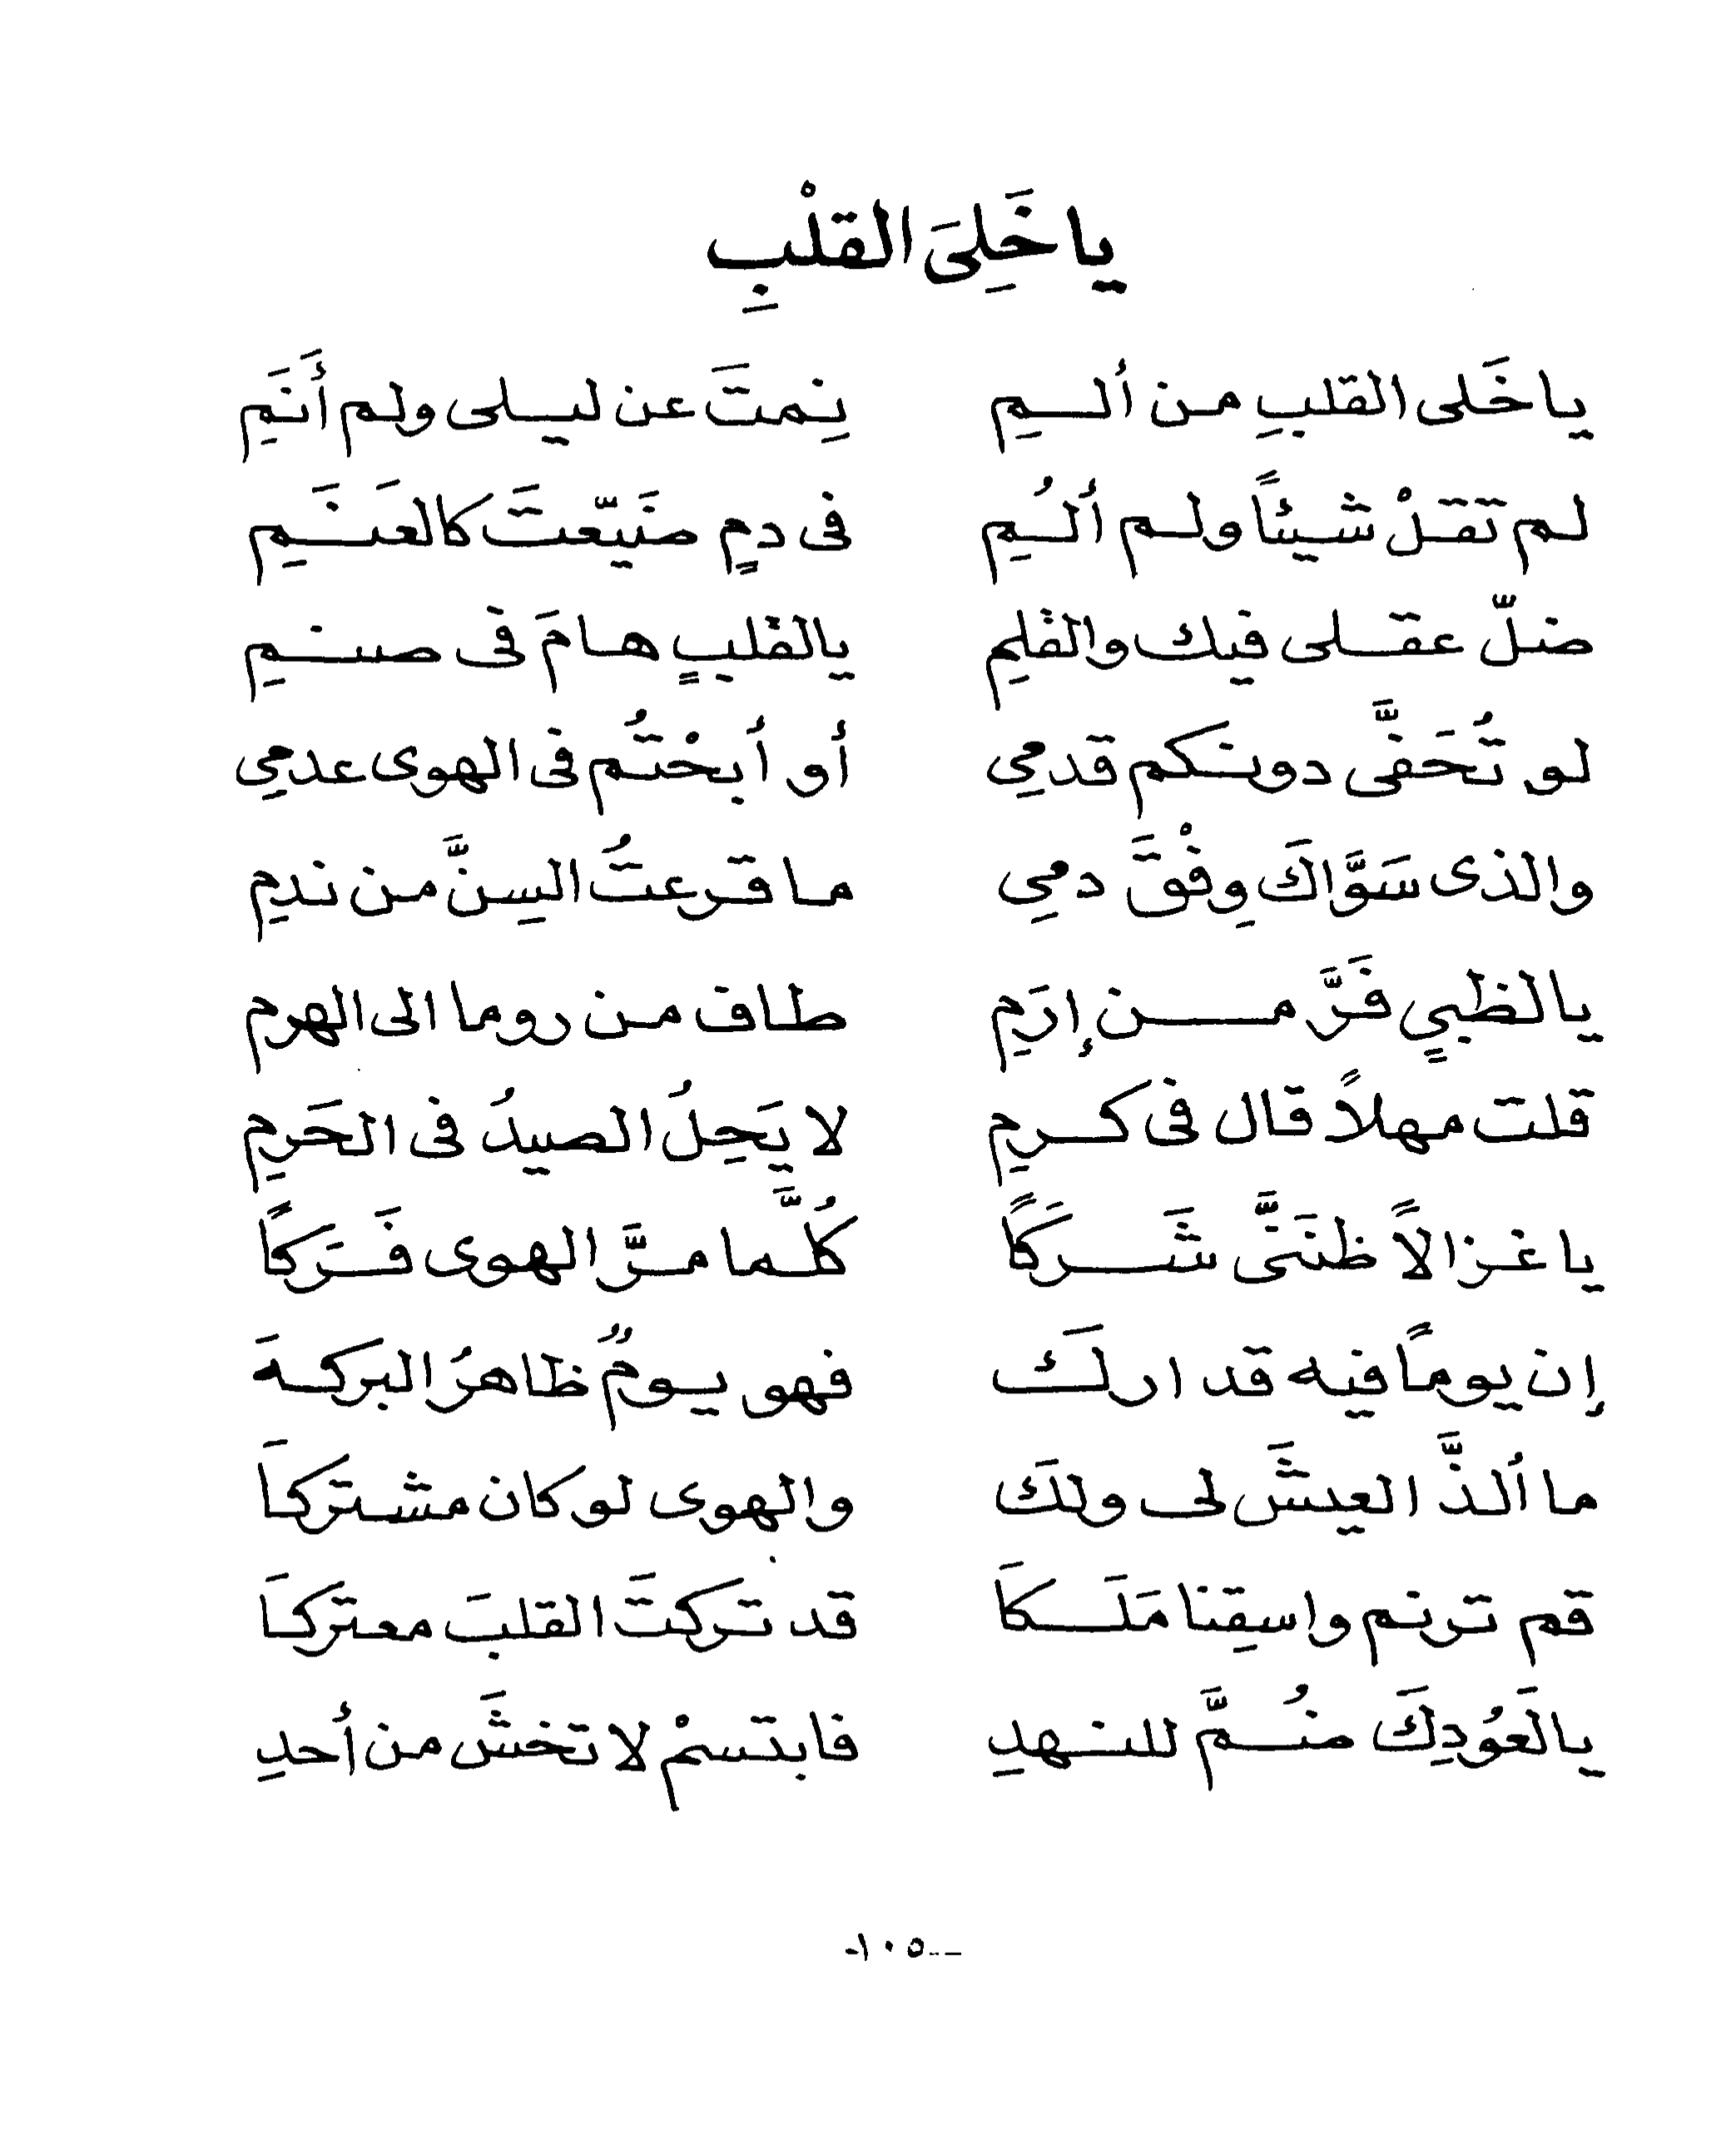 يا خَلِىَ القلْبِ
يا خَلى القلبِ من ألــمِ نِـمتَ عن ليــلى ولم أنَمِ
لم تقلْ شيئاً ولم ألُمِ فى دمٍ ضَيّعتَ كالعَنَمِ
ضلّ عقلى فيك والقلمِ يالقلبٍ هامَ فى صنمِ
لو تُحَفَّى دونكم قدمِى أو أبحْتُم فى الهوى عدمِى
والذى سَوَّاكَ وِفْقَ دمىِ ما قرعتُ السِنَّ من ندمِ
يا لظبيٍ فَرَّ من إرَمِ طاف من روما الى الهرم
قلت مهلاً قال فى كرمِ لا يَحِلُ الصيدُ فى الحَرمِ
يا غزالاً ظنَنَّى شَرَكًا كُلَّما مرَّ الهوى فَتَركًا
إن يومًا فيه قد ارلَك فهو يومٌ ظاهرُ البركهَ
ما ألذَّ العيشَ لى ولكَ والهوى لو كان مشتركاَ
قم ترنم واسقِنا مَلَكاَ قد تركتَ القلبَ معتركاَ
يالَعُودِكَ ضُمَّ للنهدِ فابتسمْ لا تخشَ من أحدِ
-١٠٥--